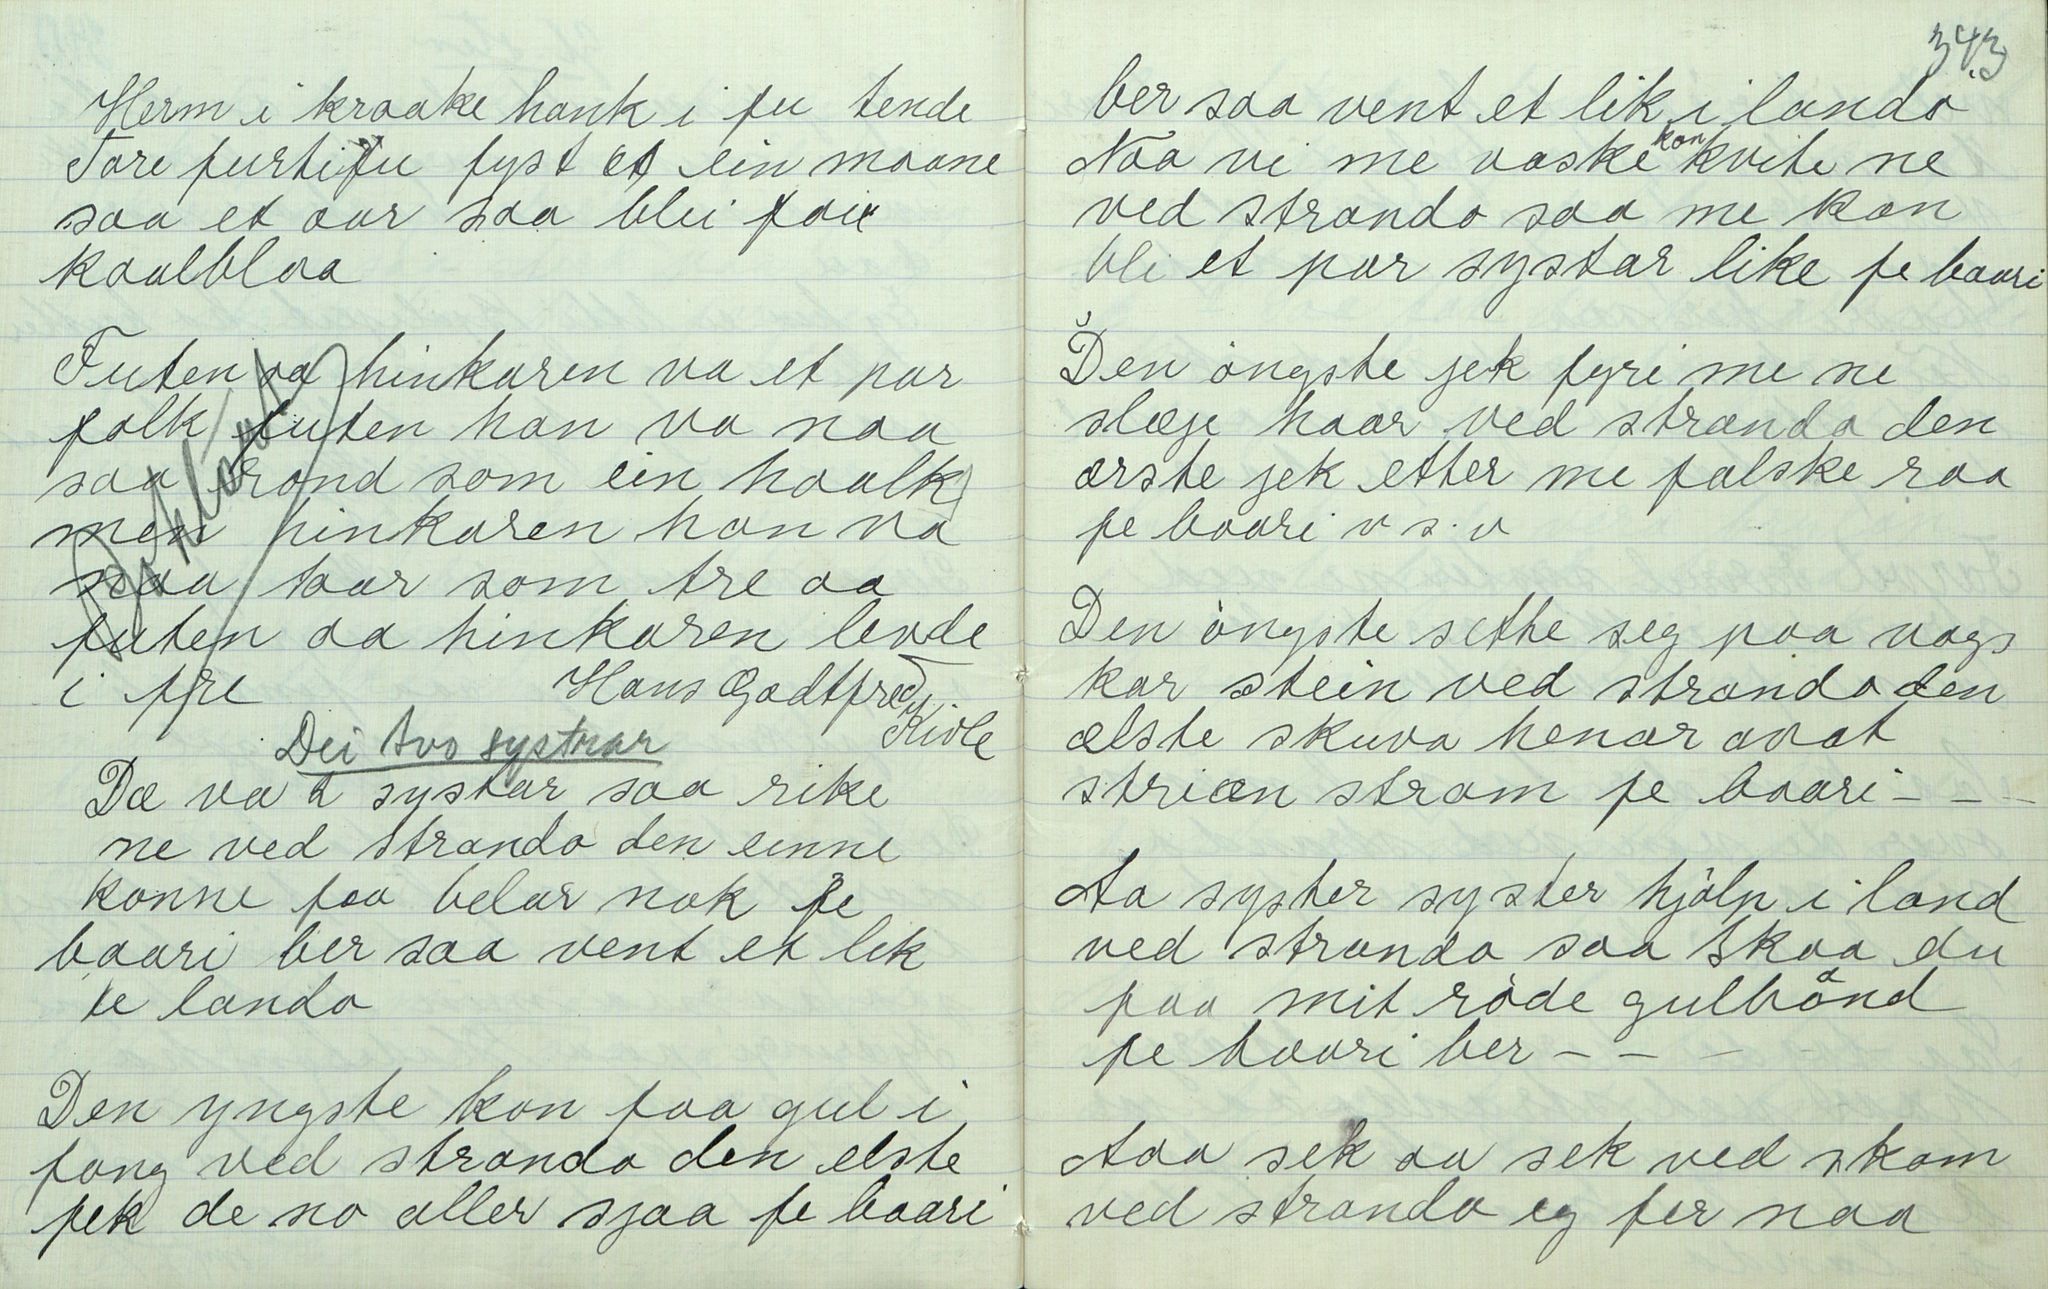 Herm i kraake hank i fu tende
Tore furtifu fyst et ein maane
saa et aar saa blei
kaalblaa
Futen aa hinkaren va et par
folk futen han va naa
saa trond som ein haalk
men hinkaren han va
naa taar som tre aa
futen aa hinkaren levde
i fre Hans Godtfred
Kivle
Dei tvo systrar
Dæ va 2 systar saa rike
ne ved strando den einne
konne faa belar nok fe
baari ber saa vent et lik
te lando
Den yngste kon faa gul i
fang ved strando den elste
fek de no aller sjaa fe baari
343
ber saa vent et lik i lando
Naa vi me vaske kon kvite ne
ved strando saa me kan
bli et par systar like fe baari
Den òngste jek fyri me ne
slæje haar ved strando den
ærste jek etter me falske raa
fe baari v s. v
Den òngste sethe seg paa vags
kar stein ved strando den
ælste skuva henar avat
striæn strøm fe baari - - -
Aa syster syster hjälp i land
ved strando saa skaa du
faa mit ròde gulbånd
fe baari ber - - - -
Aaa sek aa sek ved skam
ved strando eg fer naa